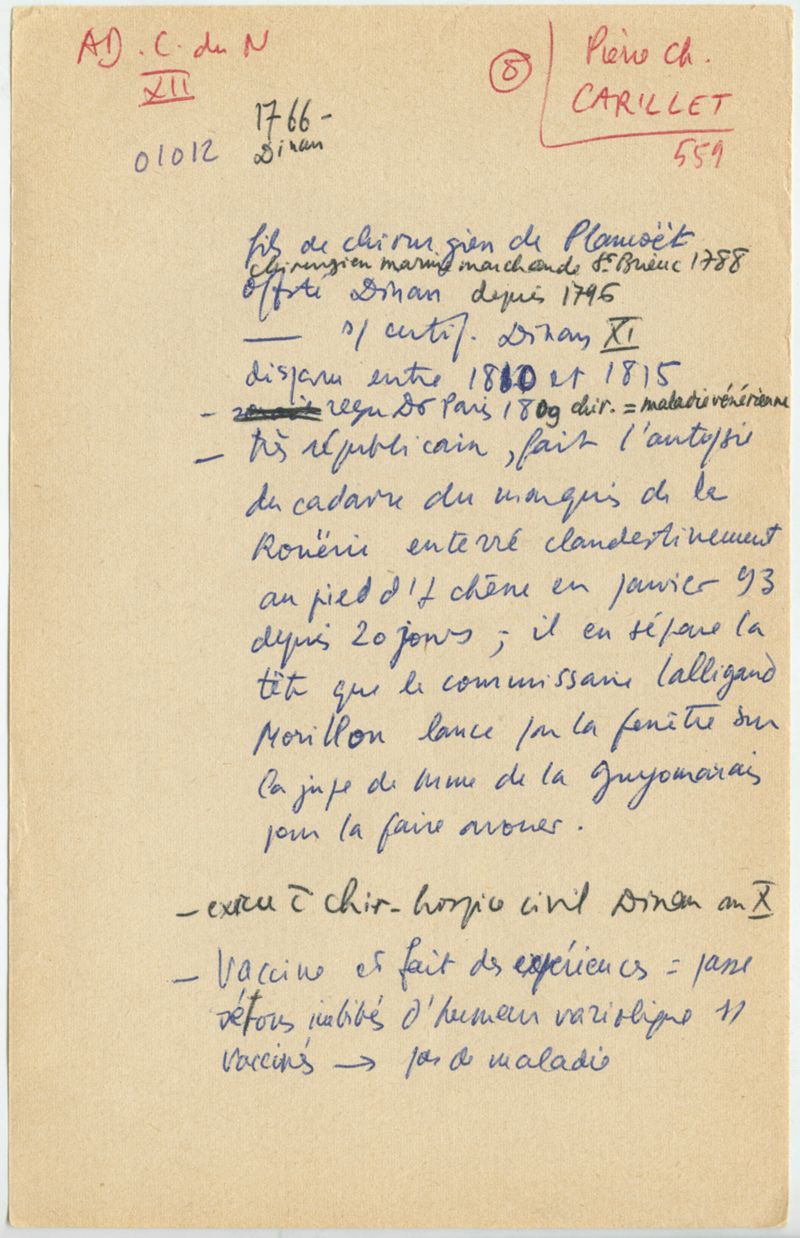 AD. C. du N
XII
01012
1766 -
Dinan
8
Pierre Ch.
CARILLET
559
fils de chirurgien de Plancoët
chirurgien marine marchande St Brieuc 1788
Off. santé Dinan depuis 1795
—— s/ certif. Dinan XI
disparu entre 1810 et 1815
- reçu Dr Paris 1809 chir. = maladie vénérienne
- très républicain, fait l'autopsie
du cadavre du marquis de la
Rouërie enterré clandestinement
au pied d'1 chêne en janvier 93
depuis 20 jours ; il en sépare la
tête que le commissaire Lalligand
Morillon lance par la fenêtre sur
la jupe de Mme de la Guyomarais
pour la faire avouer.
- exerce c̄ chir- hospice civil Dinan an X
- Vaccine et fait des expériences = passe
sétons imbibés d'humeur variolique 11
vaccinés → pas de maladie